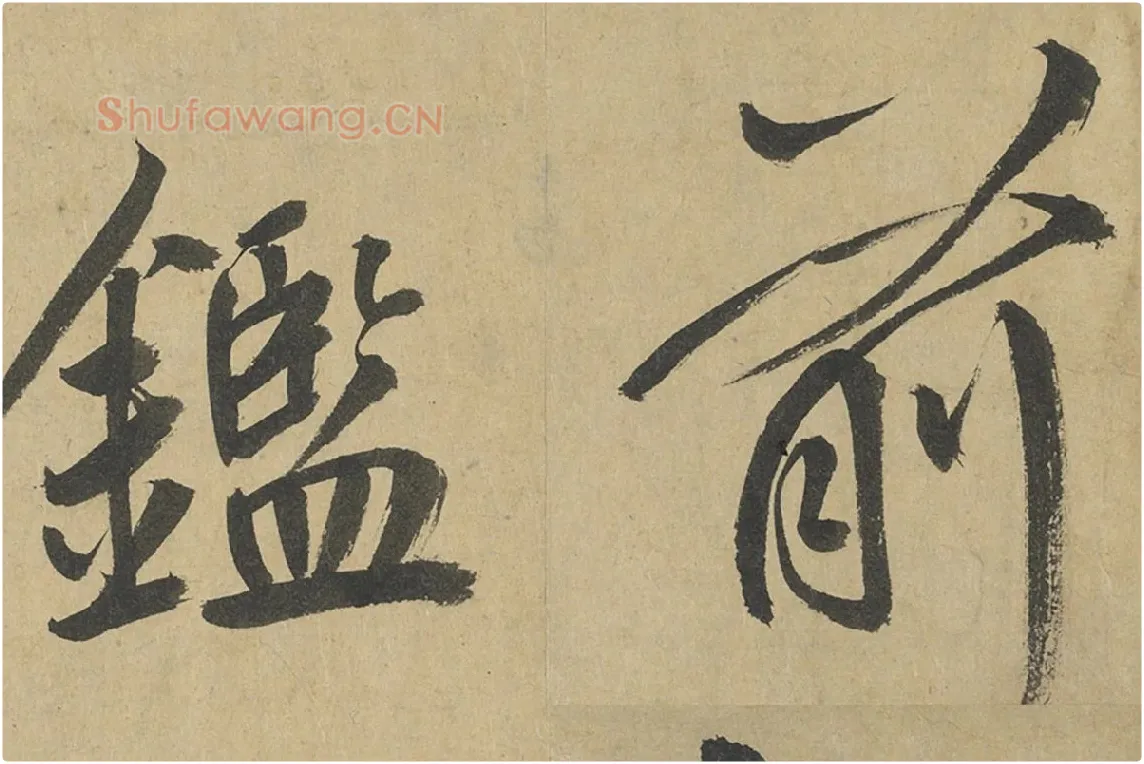 Shufawang.CN
前
鑑